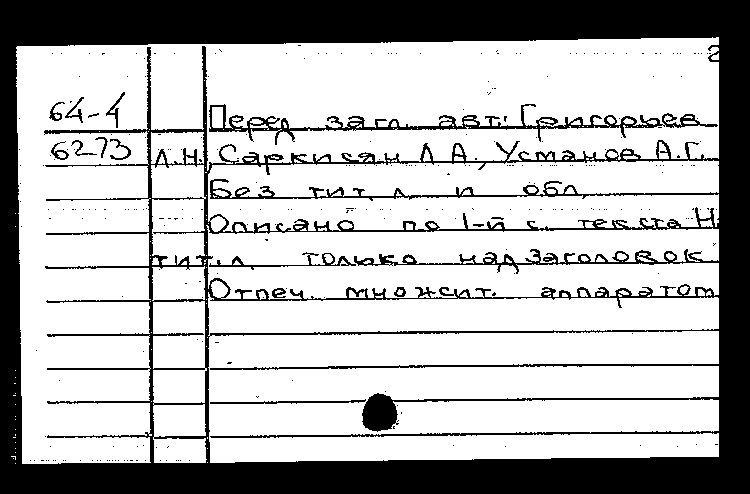 2
64-4 Перед загл. авт: Григорьев
6273 Л.Н., Саркисян Л А., Усманов А.Г.
Без тит. л. и обл.
Описано по 1-й с. текста На
тит. л. только надзаголовок
Отпеч. множит. аппаратом